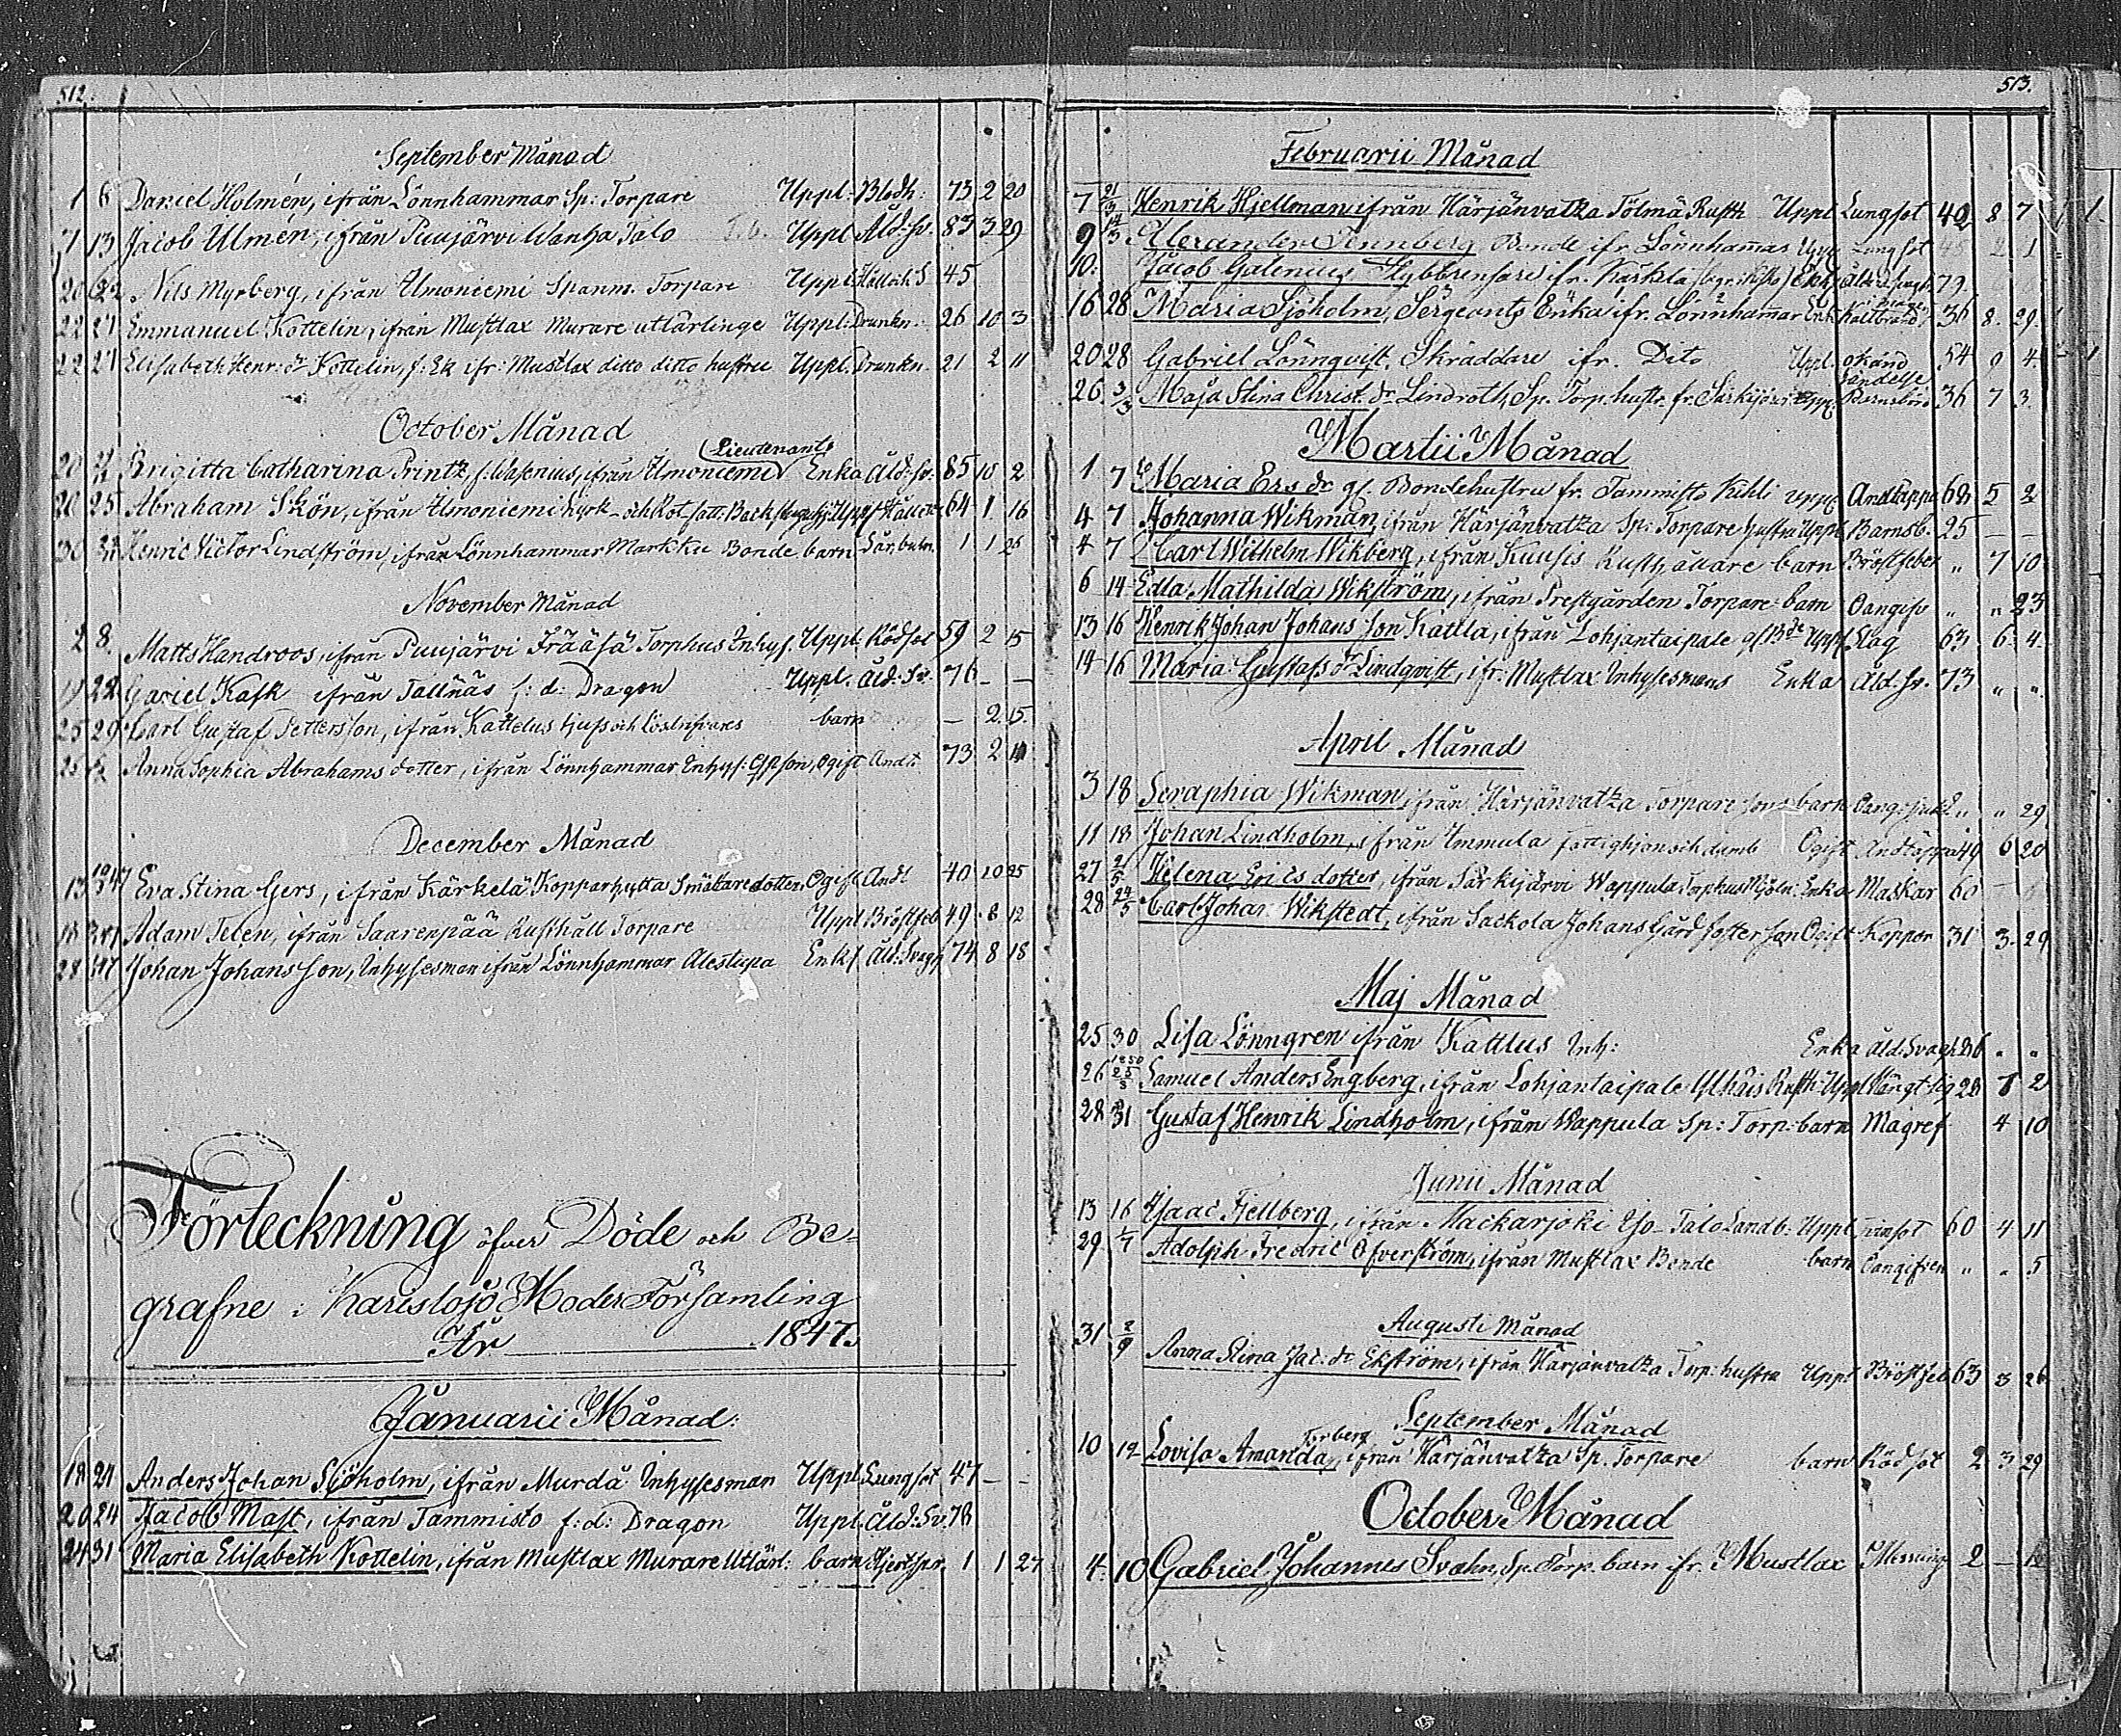 512.
September Månad
1 8 Daniel Holmén, ifrån Lönnhammar Sp: Torpare Uppl: Blodh: 73 2 20
7 13 Jacob Ulmén, ifrån Puujärvi Wanha Talo Uppl Åld: sv. 83 3 29
20 Nils Myrberg, ifrån Umoniemi Spanm. Torpare Uppl: 45
22 27 Emmanuel Kottelin, ifrån Mustlax Murare utlärlinge Uppl: Drunkn. 26 10 3
22 27 Elisabeth Henr: dr Kottelin, f: Ek ifr: Mustlax ditto ditto hustru Uppl. Drunkn. 21 2 11
October Månad
Lieutenants
20 Brigitta Catharina Printz, f: Wasenius, ifrån Umoniemi Enka Åld: sv: 85 10 2
20 25 Abraham Skön, ifrån Umoniemi 64 1 16
30 Henric Victor Lindström, ifrån Lönnhammar Markku Bonde barn 1 1 25
November Månad
2 8 Matts Handroos, ifrån Puujärvi Frääsä Torphus Inhys. Uppl. Rödsot 59 2 15
19 22 Gariel Kask ifrån Tallnäs f: d: Dragon Uppl. Åld: Sv. 76 – –
25 29 Carl Gustaf Pettersson, ifrån Kattelus barn – 2 15.
25 Anna Sophia Abrahams dotter, ifrån Lönnhammar Inhys: Ogift Andt 73 2
December Månad
13 Eva Stina Gers, ifrån Kärkelä Kopparhytta Smältaredotter, Ogift Andt 40 10 25
18 Adam Telen, ifrån Saarenpää Rusthåll Torpare Uppl Bröstfeb 49 8 12
28 Johan Johansson, Inhysesman ifrån Lönnhammar Alestupa Enkl Åld: Svagh 74 8 18
Förteckning öfver Döde och Be-
grafne i Karislojo Moder Församling
År 1847.
Januarii Månad:
18 24 Anders Johan Sjöholm, ifrån Murda Inhysesman Uppl Lungsot 47 – –
20 24 Jacob Mast, ifrån Tammisto f: d: Dragon Uppl: Åld: Sv. 78
24 31 Maria Elisabeth Kottelin, ifrån Mustlax Murare Utlärl: barn 1 1 27
513.
Februarii Månad
7 21/3 Henrik Hjellman ifrån Härjänvatka Tölmä Rusth Uppl Lungsot 42 8 7
9 14/3 Alexander Tennberg Bonde ifr. Lönnhammar Uppl Lungsot 48 2 1
10. Jacob Galenius ifr. Karkela 79
16 28 Maria Sjöholm, Sergeants Enka ifr. Lönnhammar Enk Kallbrand 36 8. 29.
20 28 Gabriel Lönnqvist, Skräddare ifr. Dito Uppl. okänd 54 9 4.
händelse
26 3/3 Maja Stina Christ. dr Lindroth, Sp. Torp. hustr. fr. Särkijärvi Uppl. Barnsbörd 36 7 3.
Martii Månad
1 7 Maria Ers dr gl. Bondehustru fr. Tammisto Kihli Uppl Andtäppa 68 5 2
4 7 Johanna Wikman, ifrån Härjänvatka Sp: Torpare hustru Uppl Barnsb. 25 – –
4 7 Carl Wilhelm Wikberg, ifrån Kuusis Rusthållare barn Bröstfeber " 7 10
6 14 Edla Mathilda Wikström, ifrån Prestgården Torpare barn Oangifv " " 23
13 16 Henrik Johan Johans son Kattla, ifrån Lohjantaipale Uppl Slag 63 6 4.
14 16 Maria Gustafs dr Lindqvist, ifr. Mustlax Inhysesmans Enka Åld. sv. 73 " "
April Månad
3 18 Seraphia Wikman ifrån Härjänvatka Torpare sons barn " " 29
11 18 Johan Lindholm, ifrån Immula fattighjon och dumb Ogift Andtäppa 49 6 20
27 2/5 Helena Erics dotter, ifrån Särkijärvi Wappula Enka Maskar 60 –
28 24/5 Carl Johan Wikstedt, ifrån Sackola Johans Gård dotter son Ogift Koppor 31 3 29
Maj Månad
25 30 Lisa Lönngren ifrån Kattlus Inh: Enka Åld: Svagh 86 " "
26 1850 25/3 Samuel Anders Engberg, ifrån Lohjantaipale Rusth: Uppl Hängt sig 28 7 2
28 31 Gustaf Henrik Lindholm, ifrån Wappula Sp: Torp. barn Magref 4 10
Junii Månad
13 16 Isaac Fjellberg, ifrån Mackarjoki Iso-Talo Landb. Uppl 60 4 11
29 1/7 Adolph Fredric Öfverström, ifrån Mustlax Bonde barn Oangifven " " 5
Augusti Månad
31 2/9 Anna Stina Jac. dr Ekström, ifrån Härjänvatka Torp: hustru Uppl Bröstfeb 63 3 26
September Månad
Forberg
10 12 Lovisa Amanda, ifrån Härjänvatka Sp. Torpare barn Rödsot 2 3 29
October Månad
4. 10 Gabriel Johannes Svahn, Sp. Torp. barn ifr. Mustlax Messling 2 –